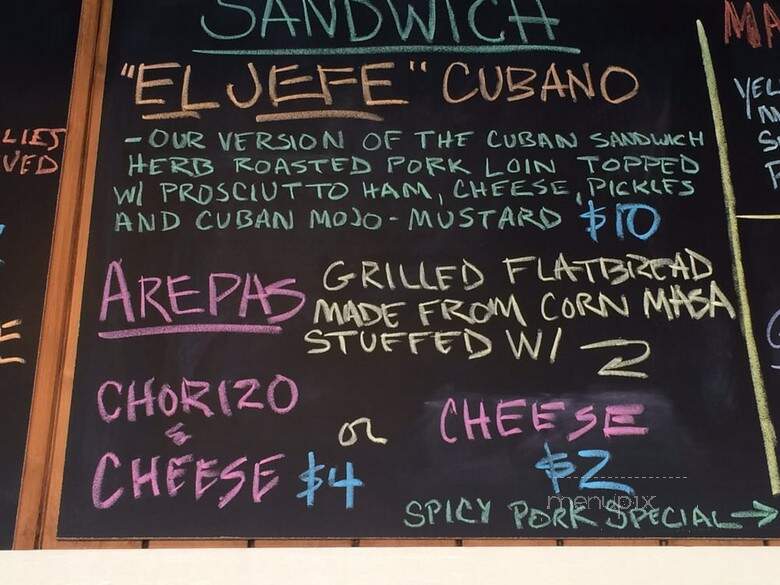 SANDWICH
"EL JEFE" CUBANO
- OUR VERSION OF THE CUBAN SANDWICH
HERB ROASTED PORK LOIN TOPPED
W/ PROSCIUTTO HAM, CHEESE, PICKLES
AND CUBAN MOJO - MUSTARD $10
AREPAS GRILLED FLATBREAD
MADE FROM CORN MASA
STUFFED W/
CHORIZO
&
CHEESE $4
or
CHEESE
$2
menupix
SPICY PORK SPECIAL →
LIES
VED
MA
YEL